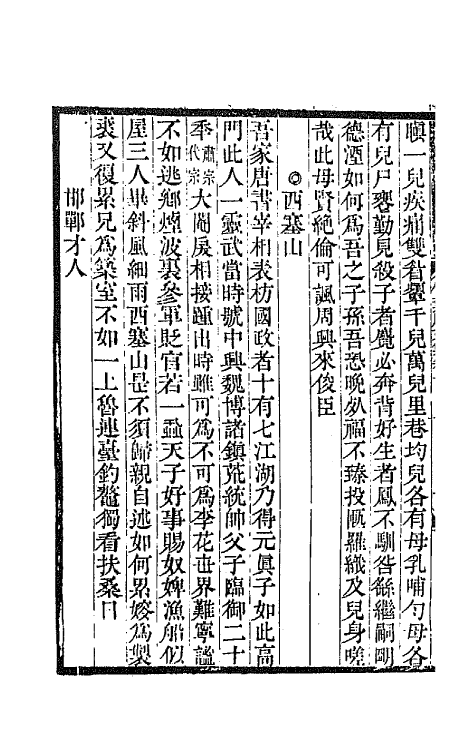 瞑一兒疾痛雙眥皸千兒萬兒里巷均兒各有母乳哺勺母各
有兒尸饔勤見殺子者麑必奔背好生者鳳不馴咎繇繼嗣剛
德湮如何爲吾之子孫吾恐晚歲福不臻投匭羅織及兒身嗟
哉此母賢絶倫可諷周興來俊臣
◎西塞山
吾家唐書宰相表枋國政者十有七江湖乃得元眞子如此高
門此人一靈武當時號中興魏博諸鎭荒統帥父子臨御二十
年肅宗代宗大閹晨相接踵出時雖可爲不可爲李花世界難寧謐
不如逃鄉煙波裏參軍貶官若一蝨天子好事賜奴婢漁船似
屋三人畢斜風細雨西塞山是不須歸親自述如何累嫂爲製
裘又復累兄爲築室不如一上魯連臺釣鼇獨看扶桑日
邯鄲才人